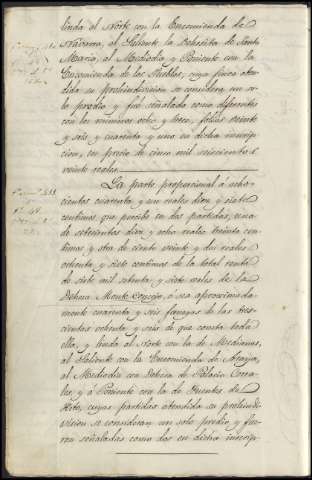 linda al Norte con la Encomienda de
Navarra, al Saliente la Deheseta de Santa
Maria, al Mediodia y Poniente con la
Encomienda de los Pueblos, cuya finca aten-
dida su proindivisión se considera un so-
lo predio y fué señalada como diferentes
con los numeros ocho y trece, folios veinte
y seis y cuarenta y uno en dicha inscrip-
cion, en precio de cinco mil seiscientos
veinte reales.
La parte proporcional á ocho-
cientos cuarenta y un reales diez y siete
centimos que percibe en dos partidas, una
de setecientos diez y ocho reales treinta cen-
timos y otra de ciento veinte y dos reales
ochenta y siete centimos de la total renta
de siete mil setenta y siete reales de la
Dehesa Monte Concejo, ó sea aproximada-
mente cuarenta y seis fanegas de las tres-
cientas ochenta y seis de que consta toda
ella, y linda al Norte con la de Medianas,
al Saliente con la Encomienda de
al Mediodia con Dehesa de Palacio Corra-
les, y á Poniente con la de Fuentes de
cuyas partidas atendida su proindi-
vision se consideran un solo predio y fue-
ron señaladas como dos en dicha inscrip-